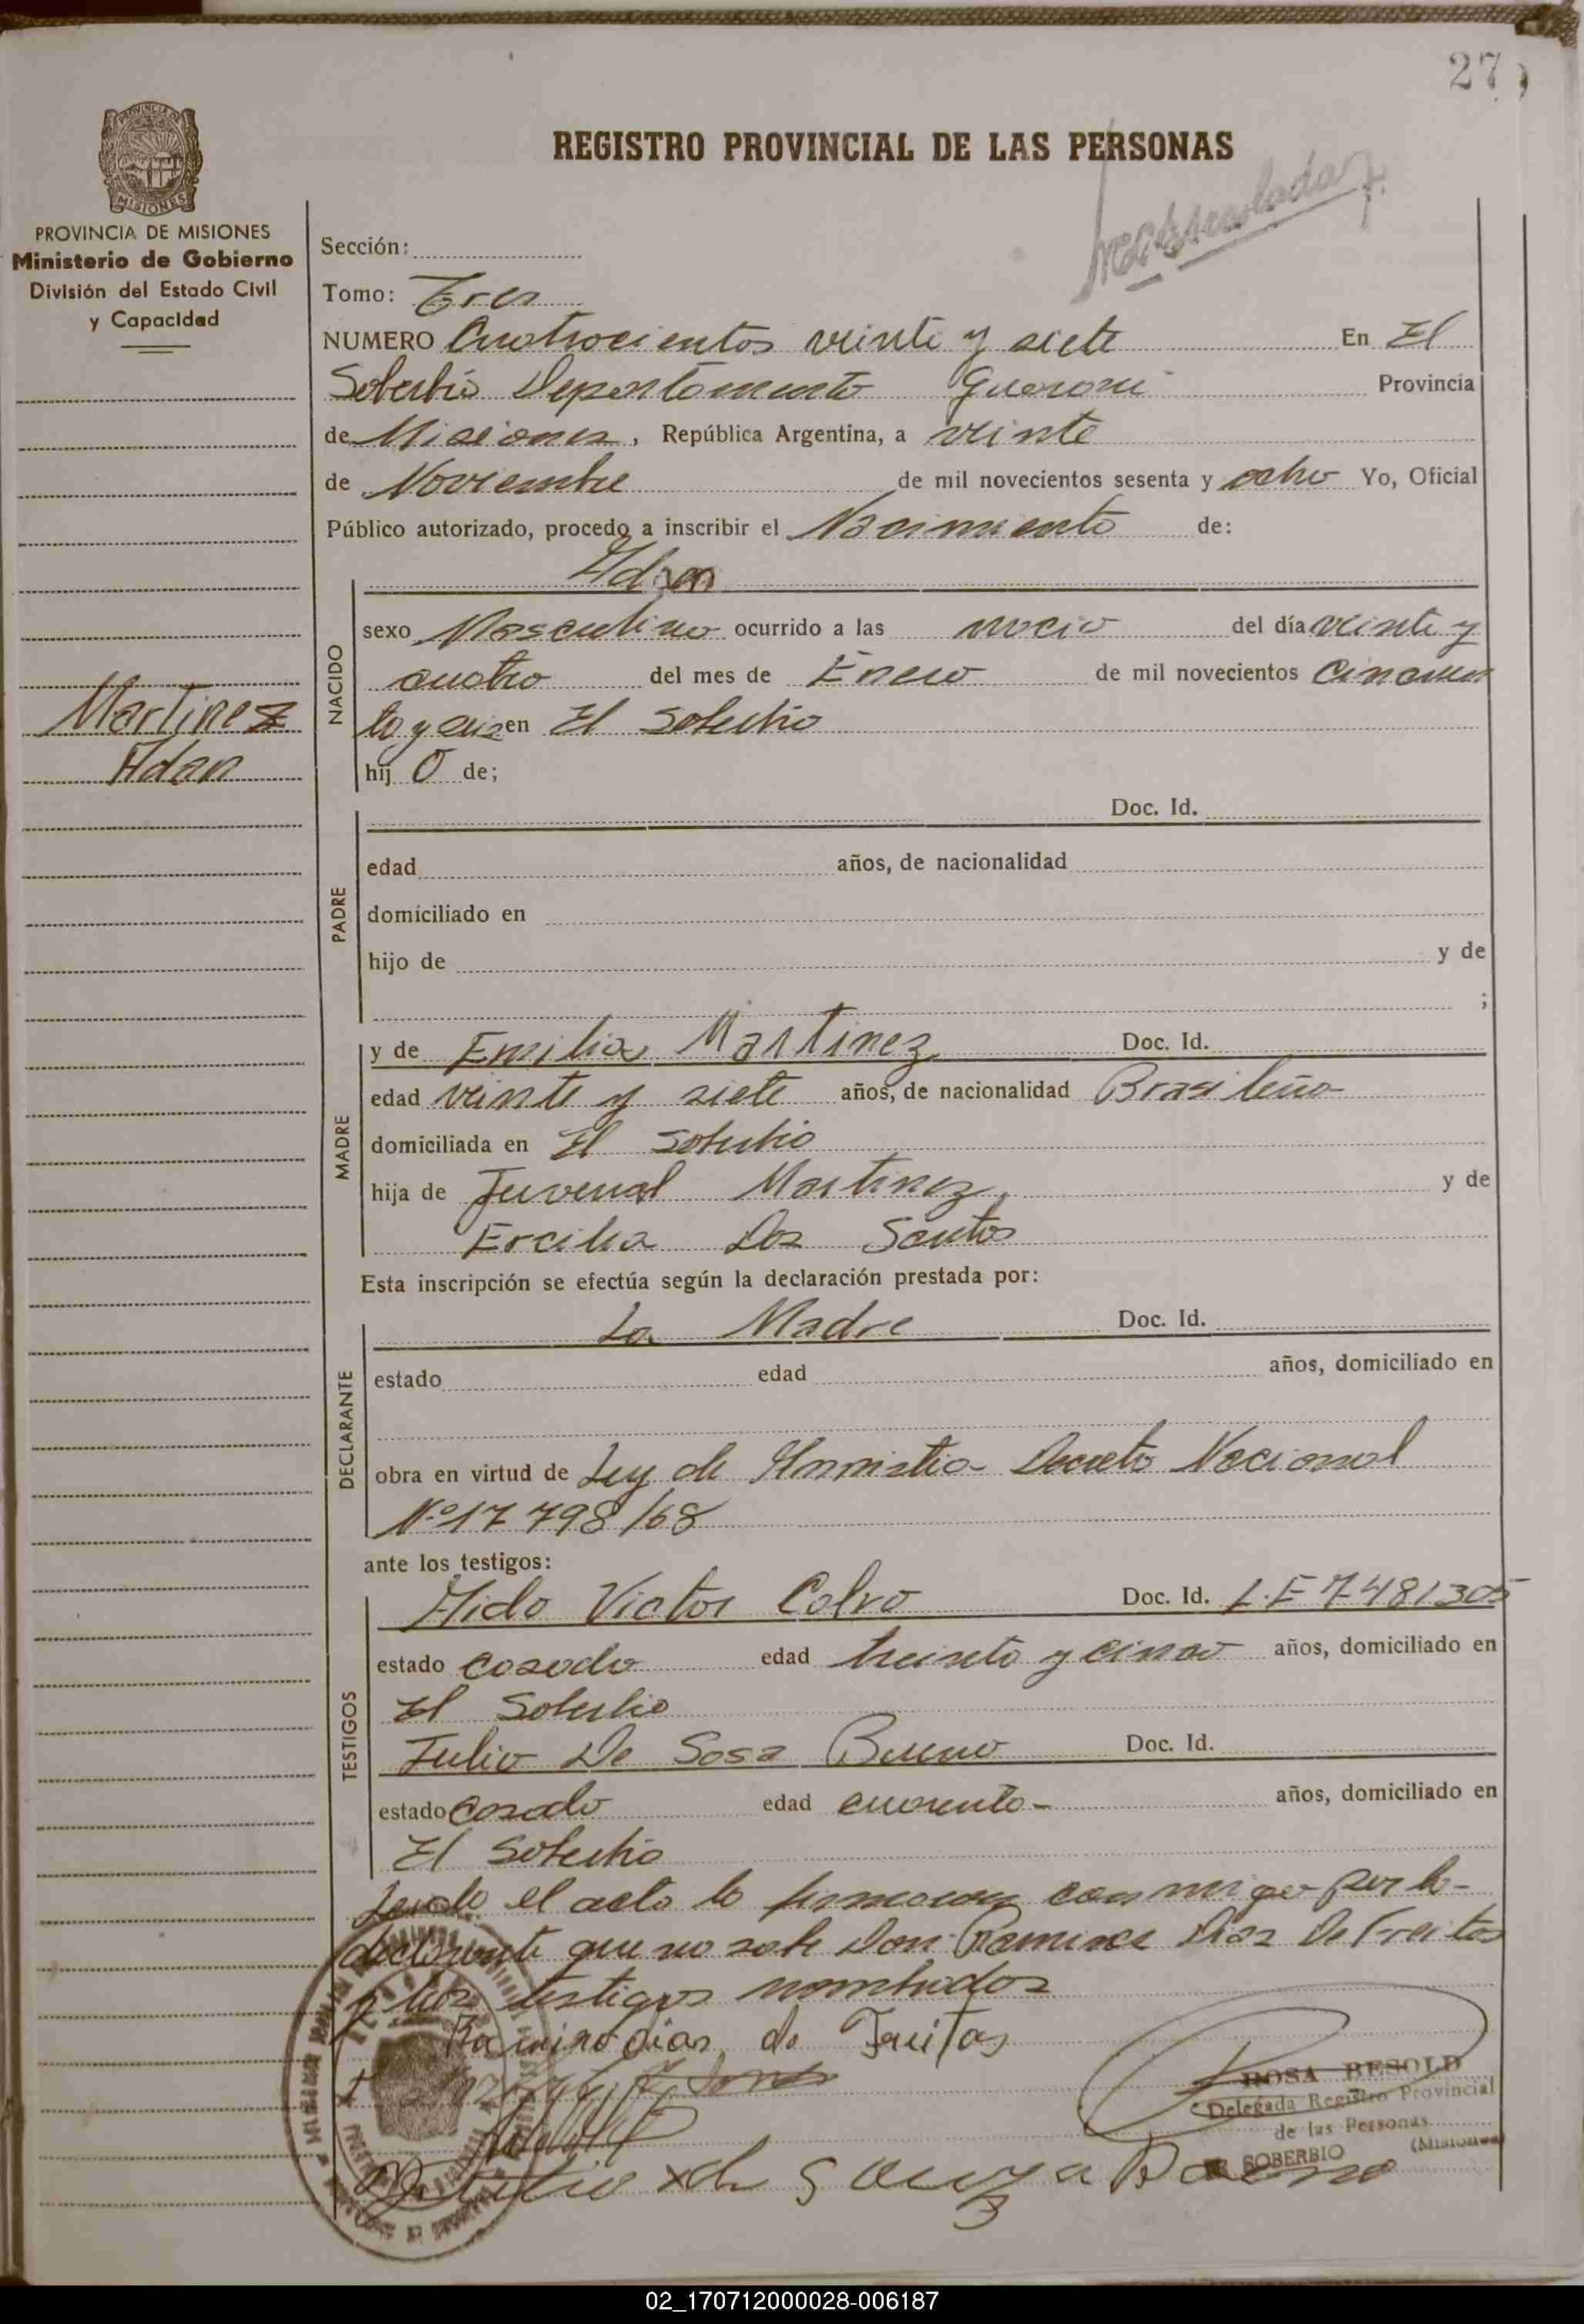 27
REGISTRO PROVINCIAL DE LAS PERSONAS
PROVINCIA DE MISIONES
MISIONES
PROVINCIA DE MISIONES
Ministerio de Gobierno
División del Estado Civil
y Capacidad
Sección:
Tomo: Tres
NUMERO Cuatrocientos veinte y siete En El
Soberbio Departamento Guarani Provincia
de Misiones, República Argentina, a veinte
de Noviembre de mil novecientos sesenta y ocho Yo, Oficial
Público autorizado, procedo a inscribir el Nacimiento de:
Adan
NACIDO
sexo Masculino ocurrido a las del día veinte y
cuatro del mes de Enero de mil novecientos cincuen
ta y en El Soberbio
hij o de;
Martinez
Adan
PADRE
Doc. Id.
edad años, de nacionalidad
domiciliado en
hijo de y de
;
MADRE
y de Emilia Martinez Doc. Id.
edad veinte y siete años, de nacionalidad Brasileña
domiciliada en El Soberbio
hija de Juvenal Martinez y de
Ercilia Dos Santos
Esta inscripción se efectúa según la declaración prestada por:
DECLARANTE
La Madre Doc. Id.
estado edad años, domiciliado en
obra en virtud de Ley de Amnistia Decreto Nacional
Nº 17798/68
ante los testigos:
TESTIGOS
Victor Calvo Doc. Id. L.E 7481305
estado casado edad treinta y cinco años, domiciliado en
El Soberbio
Julio De Sosa Bueno Doc. Id.
estado casado edad cuarenta - años, domiciliado en
El Soberbio
Leido el acta lo firmaron con migo por la -
declarante que no sabe Don Ramiro Dias De Freitas
y los testigos nombrados
Ramiro dias de Freitas
ROSA BESOLD
Delegada Registro Provincial
de las Personas
SOBERBIO (Misiones)
Julio de Souza Bueno
02_170712000028-006187